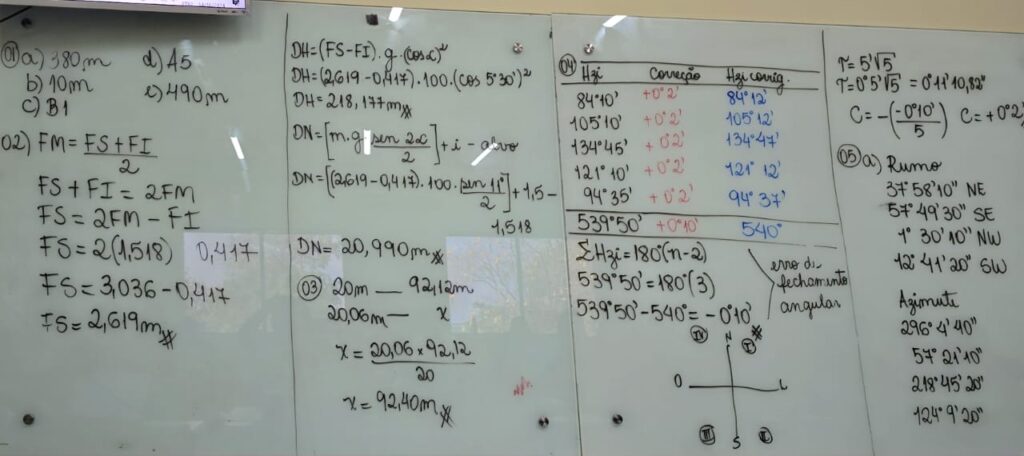 01) a) 380m d) A5
b) 10m e) 490m
c) B1
02) FM = FS + FI / 2
FS + FI = 2FM
FS = 2FM - FI
FS = 2(1,518) 0,417
FS = 3,036 - 0,417
FS = 2,619m
DH = (FS - FI) . g . (cos α)²
DH = (2,619 - 0,417) . 100 . (cos 5°30')²
DH = 218,177m
DN = [m.g. sen 2α / 2] + i - alvo
DN = [(2,619 - 0,417) . 100 . sen 11° / 2] + 1,5 -
1,518
DN = 20,990m
03) 20m — 92,12m
20,06m — x
x = 20,06 × 92,12 / 20
x = 92,40m
04) Hzi Correção Hzi corrig.
84°10' +0°2' 84°12'
105°10' +0°2' 105°12'
134°45' +0°2' 134°47'
121°10' +0°2' 121°12'
94°35' +0°2' 94°37'
539°50' +0°10' 540°
ΣHzi = 180°(n-2)
539°50' = 180°(3)
539°50' - 540° = -0°10'
erro de
fechamento
angular
IV N I
O L
III S II
T = 5'√5
T = 0°5'√5 = 0°11'10,82"
C = -(-0°10' / 5) C = +0°2'
05) a) Rumo
37°58'10" NE
57°49'30" SE
1°30'10" NW
12°41'20" SW
Azimute
296°4'40"
57°21'10"
218°45'20"
124°9'20"